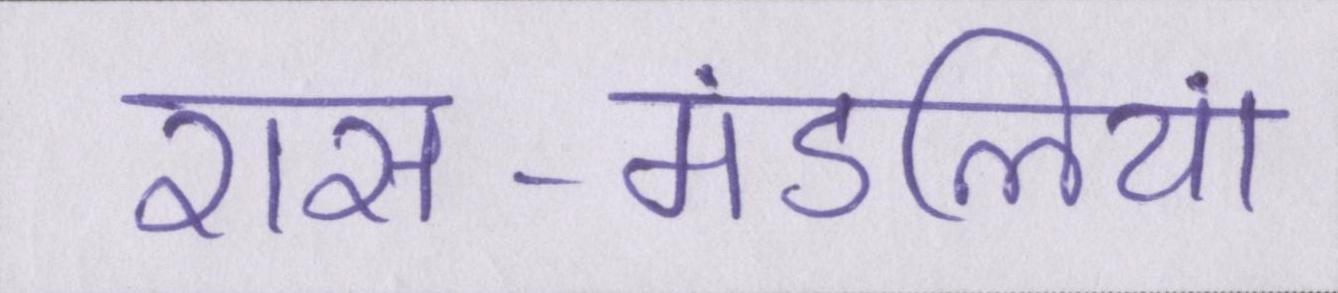 रास-मंडलियां